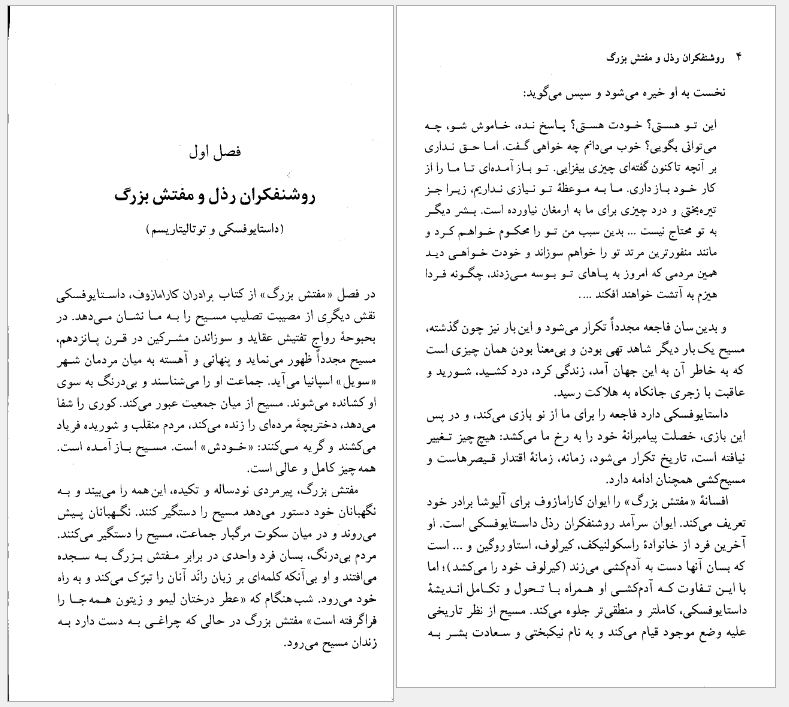 فصل اول
روشنفکران رذل و مفتش بزرگ
(داستایوفسکی و توتالیتاریسم)
در فصل «مفتش بزرگ» از کتاب برادران کارامازوف، داستایوفسکی
نقش دیگری از مصیبت تصلیب مسیح را به ما نشان می‌دهد. در
بحبوحهٔ رواج تفتیش عقاید و سوزاندن مشرکین در قرن پانزدهم،
مسیح مجدداً ظهور می‌نماید و پنهانی و آهسته به میان مردمان شهر
«سویل» اسپانیا می‌آید. جماعت او را می‌شناسند و بی‌درنگ به سوی
او کشانده می‌شوند. مسیح از میان جمعیت عبور می‌کند. کوری را شفا
می‌دهد، دختربچهٔ مرده‌ای را زنده می‌کند، مردم منقلب و شوریده فریاد
می‌کشند و گریه می‌کنند: «خودش» است. مسیح باز آمده است.
همه چیز کامل و عالی است.
مفتش بزرگ، پیرمردی نودساله و تکیده، این همه را می‌بیند و به
نگهبانان خود دستور می‌دهد مسیح را دستگیر کنند. نگهبانان پیش
می‌روند و در میان سکوت مرگبار جماعت، مسیح را دستگیر می‌کنند.
مردم بی‌درنگ، بسان فرد واحدی در برابر مفتش بزرگ به سجده
می‌افتند و او بی‌آنکه کلمه‌ای بر زبان راند آنان را تبرّک می‌کند و به راه
خود می‌رود. شب هنگام که «عطر درختان لیمو و زیتون همه جا را
فراگرفته است» مفتش بزرگ در حالی که چراغی به دست دارد به
زندان مسیح می‌رود.
۴ روشنفکران رذل و مفتش بزرگ
نخست به او خیره می‌شود و سپس می‌گوید:
این تو هستی؟ خودت هستی؟ پاسخ نده، خاموش شو، چه
می‌توانی بگویی؟ خوب می‌دانم چه خواهی گفت. اما حق نداری
بر آنچه تاکنون گفته‌ای چیزی بیفزایی. تو باز آمده‌ای تا ما را از
کار خود بازداری. ما به موعظهٔ تو نیازی نداریم، زیرا جز
تیره‌بختی و درد چیزی برای ما به ارمغان نیاورده است. بشر دیگر
به تو محتاج نیست ... بدین سبب من تو را محکوم خواهم کرد و
مانند منفورترین مرتد تو را خواهم سوزاند و خودت خواهی دید
همین مردمی که امروز به پاهای تو بوسه می‌زدند، چگونه فردا
هیزم به آتشت خواهند افکند ....
و بدین سان فاجعه مجدداً تکرار می‌شود و این بار نیز چون گذشته،
مسیح یک بار دیگر شاهد تهی بودن و بی‌معنا بودن همان چیزی است
که به خاطر آن به این جهان آمد، زندگی کرد، درد کشید، شورید و
عاقبت با زجری جانکاه به هلاکت رسید.
داستایوفسکی دارد فاجعه را برای ما از نو بازی می‌کند، و در پس
این بازی، خصلت پیامبرانهٔ خود را به رخ ما می‌کشد: هیچ چیز تغییر
نیافته است، تاریخ تکرار می‌شود، زمانه، زمانهٔ اقتدار قیصرهاست و
مسیح‌کشی همچنان ادامه دارد.
افسانهٔ «مفتش بزرگ» را ایوان کارامازوف برای آلیوشا برادر خود
تعریف می‌کند. ایوان سرآمد روشنفکران رذل داستایوفسکی است. او
آخرین فرد از خانوادهٔ راسکولنیکف، کیرلوف، استاوروگین و ... است
که بسان آنها دست به آدم‌کشی می‌زند (کیرلوف خود را می‌کشد)؛ اما
با این تفاوت که آدم‌کشی او همراه با تحول و تکامل اندیشهٔ
داستایوفسکی، کاملتر و منطقی‌تر جلوه می‌کند. مسیح از نظر تاریخی
علیه وضع موجود قیام می‌کند و به نام نیکبختی و سعادت بشر به